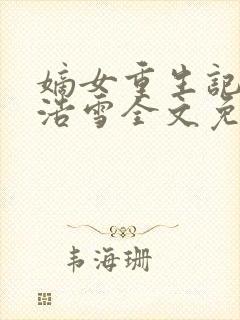 嫡女重生記
浩雪全文免
韦海珊